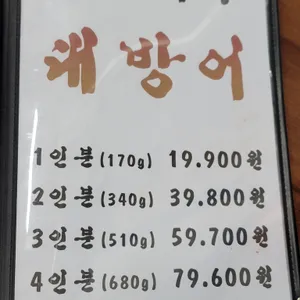 대방어
1인분(170g) 19.900원
2인분(340g) 39.800원
3인분(510g) 59.700원
4인분(680g) 79.600원